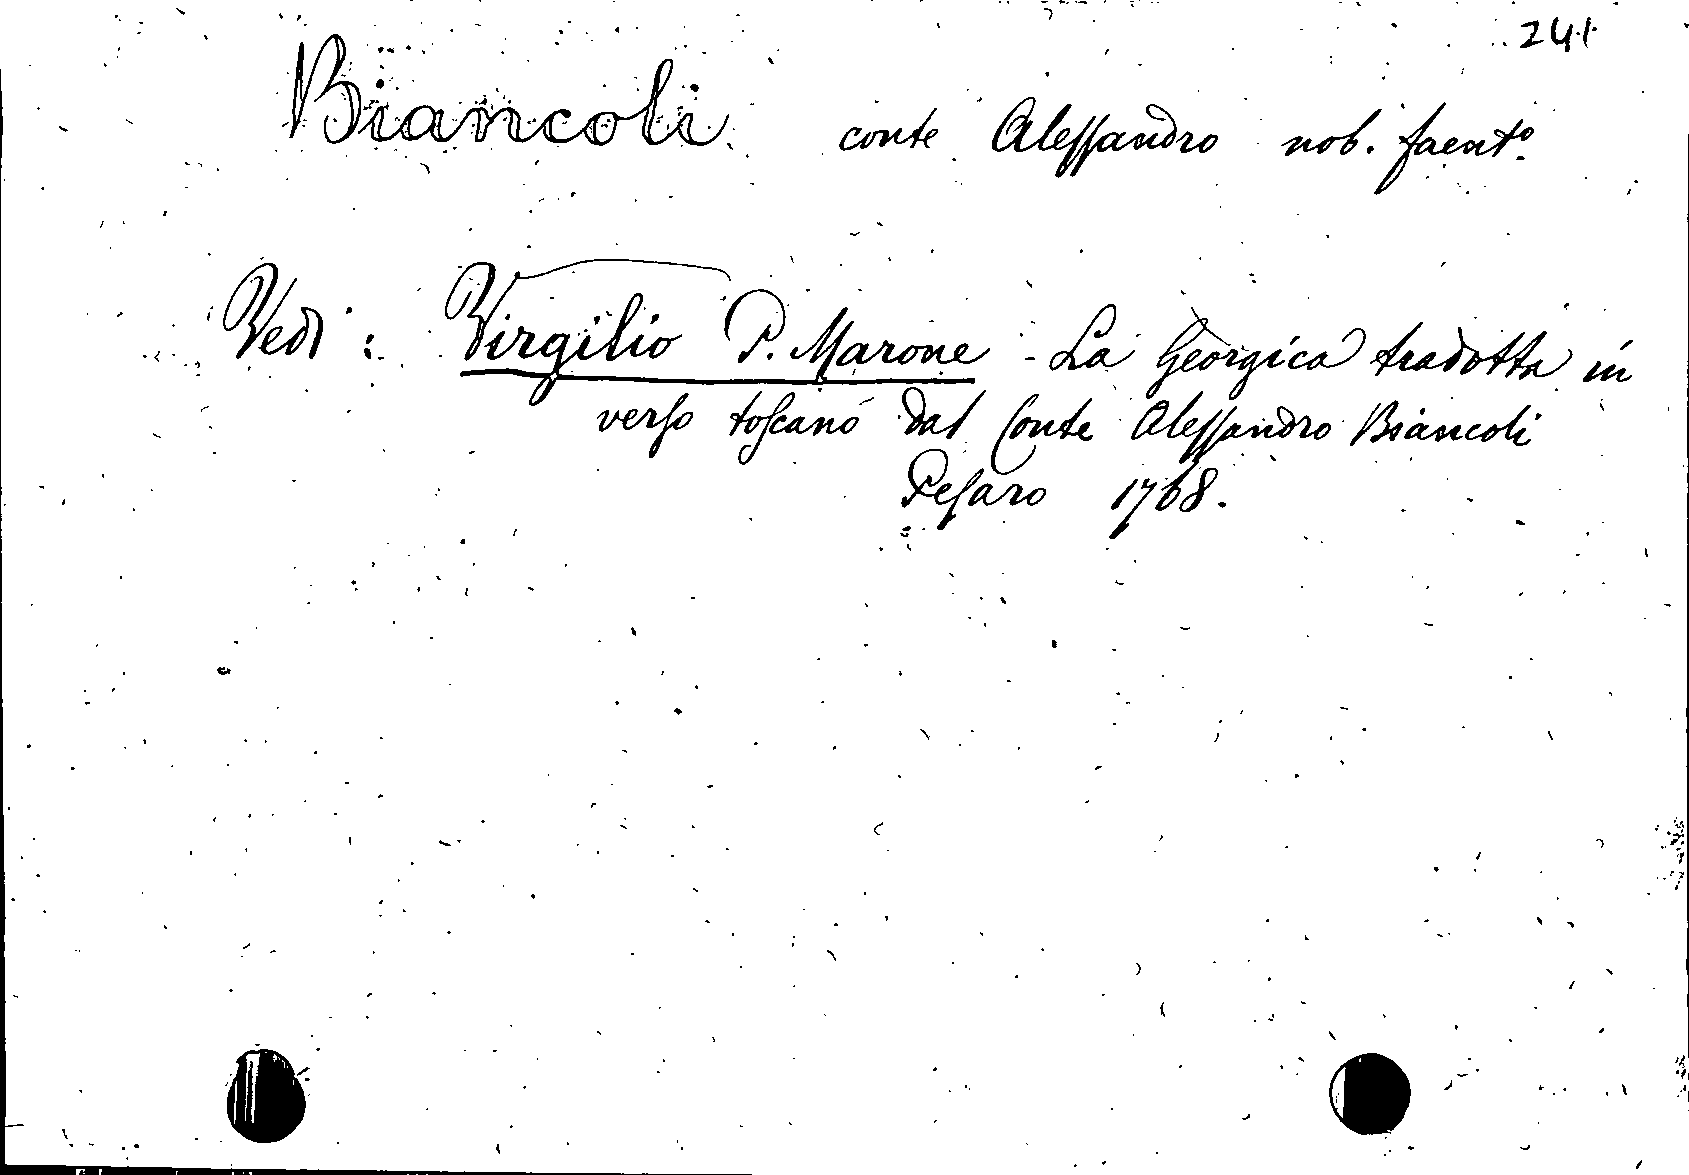 241
Biancoli conte Alessandro nob. faent.º
Vedi: Virgilio P. Marone - La Georgica tradotta in
verso toscano dal Conte Alessandro Biancoli
Pesaro 1768.